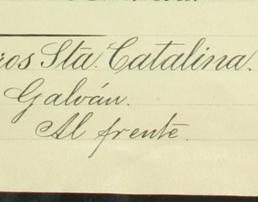 ros Sta. Catalina.
Galván.
Al frente.